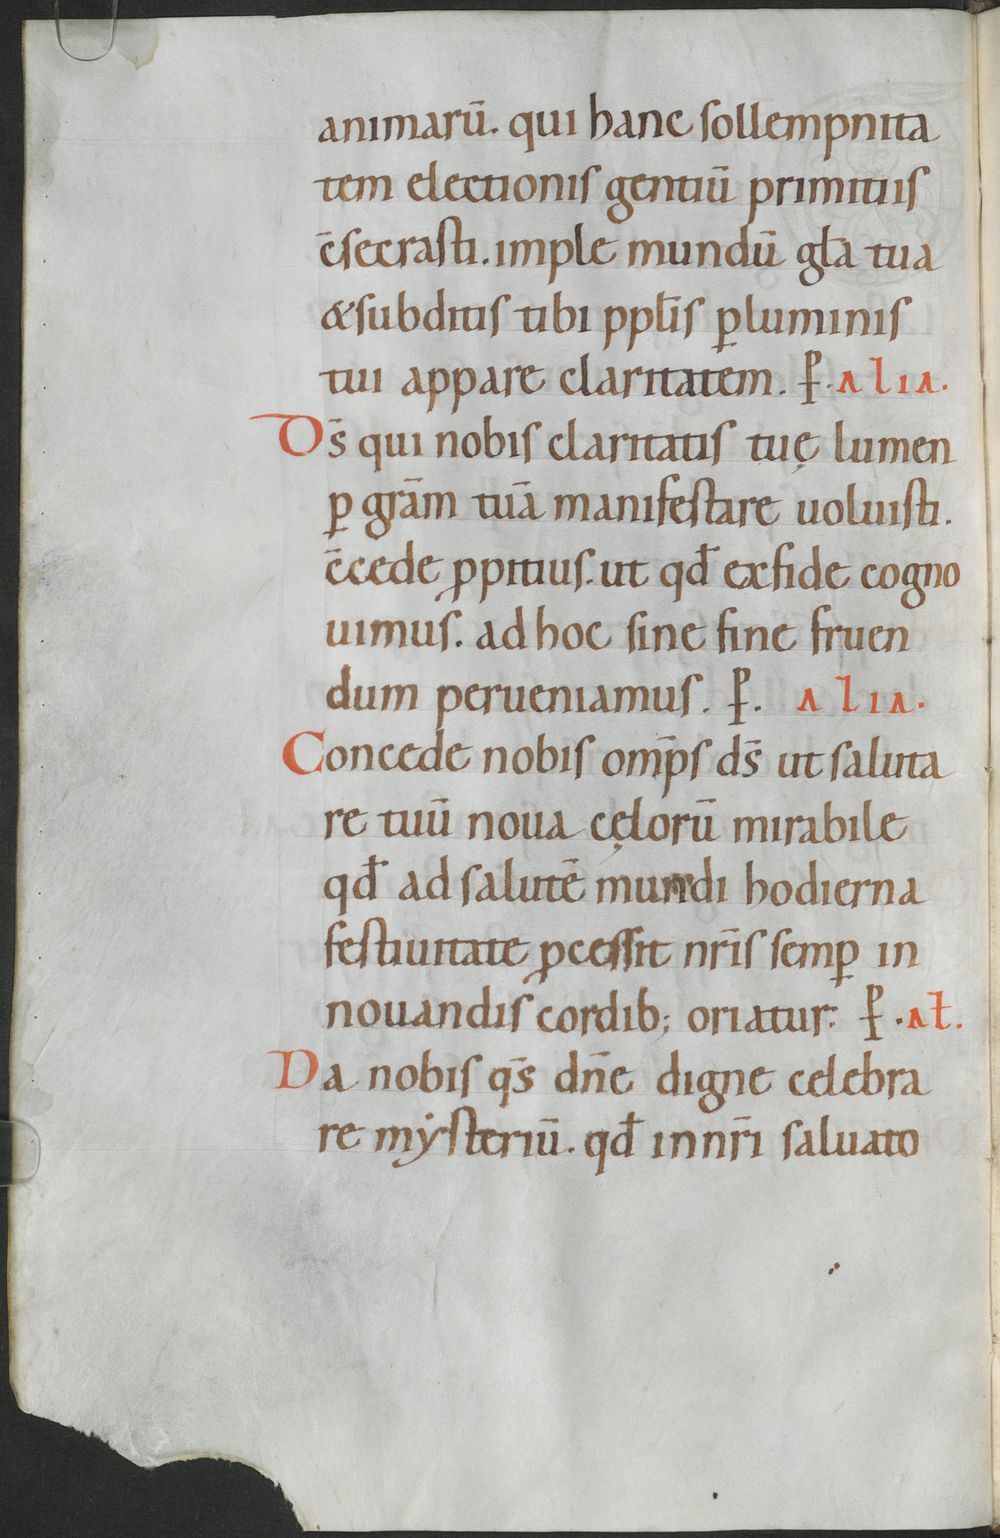 animarū. qui hanc sollempnita
tem electionis gentiū primitiis
c̄secrasti. imple mundū gl̄a tua
& subditis tibi ppl̄is p̱ luminis
tui appare claritatem. P̱. ALIA.
Ds̄ qui nobis claritatis tuę lumen
p̱ grām tuā manifestare uoluisti.
c̄cede ꝓpitius. ut qd̄ ex fide cogno
uimus. ad hoc sine fine fruen
dum perueniamus. P̱. ALIA.
Concede nobis omp̄s ds̄ ut saluta
re tuū noua cęlorū mirabile
qd̄ ad salutē mundi hodierna
festiuitate ꝓcessit nr̄is semp̱ in
nouandis cordib; oriatur. P̱. Al̄.
Da nobis qs̄ dn̄e digne celebra
re mẏsteriū. qd̄ in nr̄i saluato